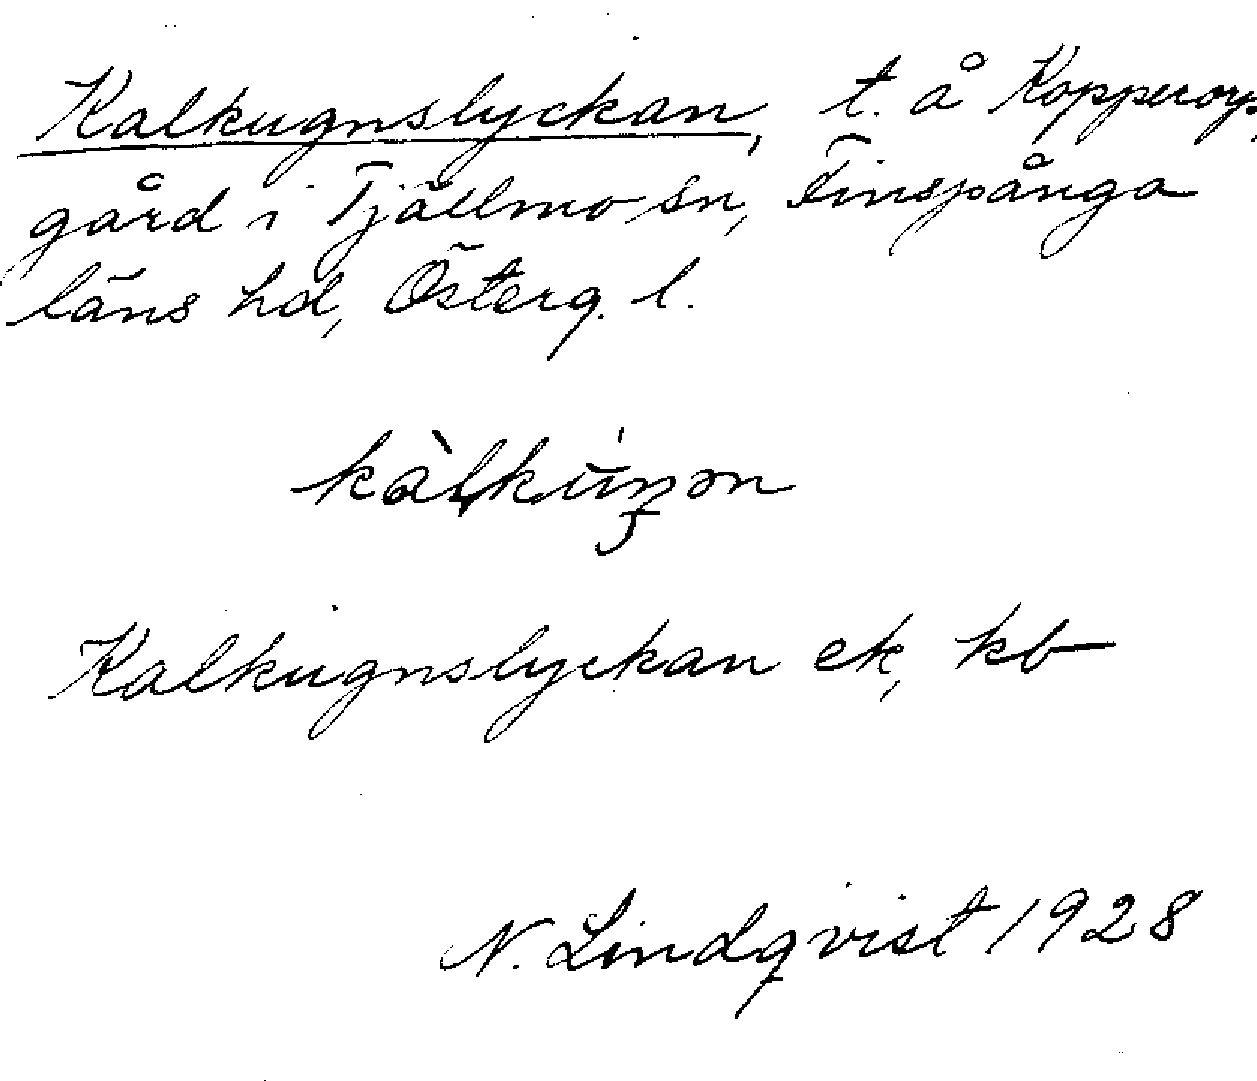 Kalkugnslyckan, t. å Kopperorp.
gård i Tjällmo sn, Finspånga
läns hd, Österg. l.
kàlkūŋən
Kalkugnslyckan ek, kb
N. Lindqvist 1928